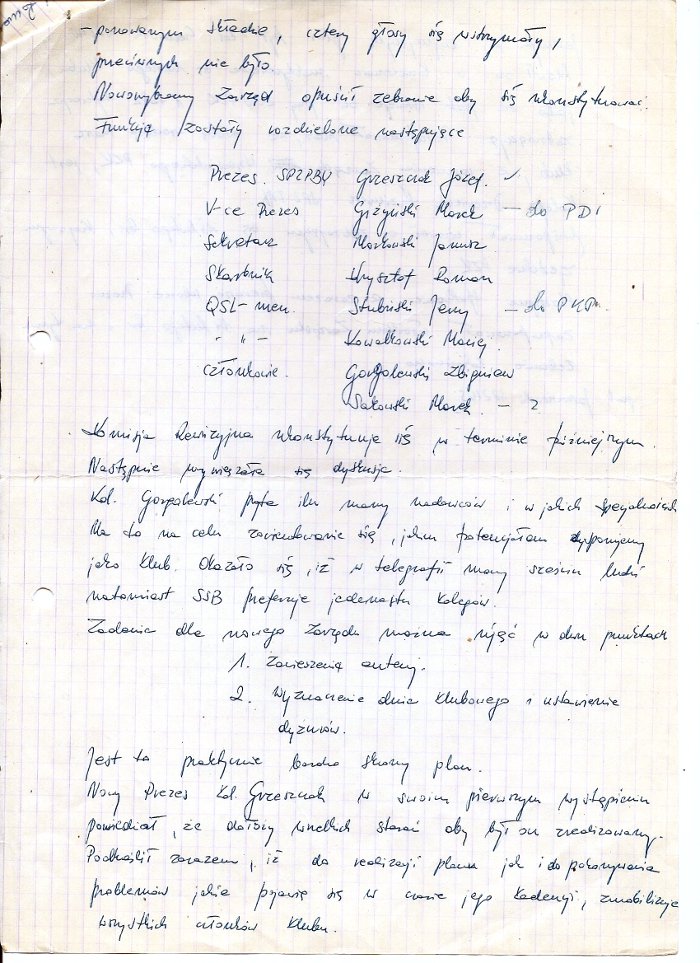 -ponowanym składzie, cztery głosy się wstrzymały,
przeciwnych nie było
Nowowybrany Zarząd opuścił zebranie aby się ukonstytuować.
Funkcje zostały rozdzielone następująco
Prezes SP2PBY Grzeszczak Józef. ✓
V-ce Prezes Giżyński Marek — do PDI
Sekretarz Markowski Janusz
Skarbnik Krzysztof Roman
QSL-men. Stubiński Jerzy — do PKP.
- " - Kowalkowski Maciej
Członkowie. Gorgolewski Zbigniew
Sakowski Marek. — ?
Komisja Rewizyjna ukonstytuuje się w terminie późniejszym.
Następnie wywiązała się dyskusja.
Kol. Gorgolewski pyta ilu mamy nadawców i w jakich specjalnościach
Ma to na celu zorientowanie się, jakim potencjałem dysponujemy
jako klub. Okazało się, iż w telegrafii mamy sześciu ludzi
natomiast SSB preferuje jedenastu kolegów.
Zadania dla nowego Zarządu można ująć w dwu punktach
1. Zawieszenie anteny.
2. Wyznaczenie dnia klubowego i ustawienie
dyżurów.
Jest to praktycznie bardzo skromny plan.
Nowy Prezes Kol. Grzeszczak w swoim pierwszym wystąpieniu
powiedział, że dołoży wszelkich starań aby był on zrealizowany.
Podkreślił zarazem, iż do realizacji planu jak i do pokonywania
problemów jakie pojawią się w czasie jego kadencji, zmobilizuje
wszystkich członków klubu.